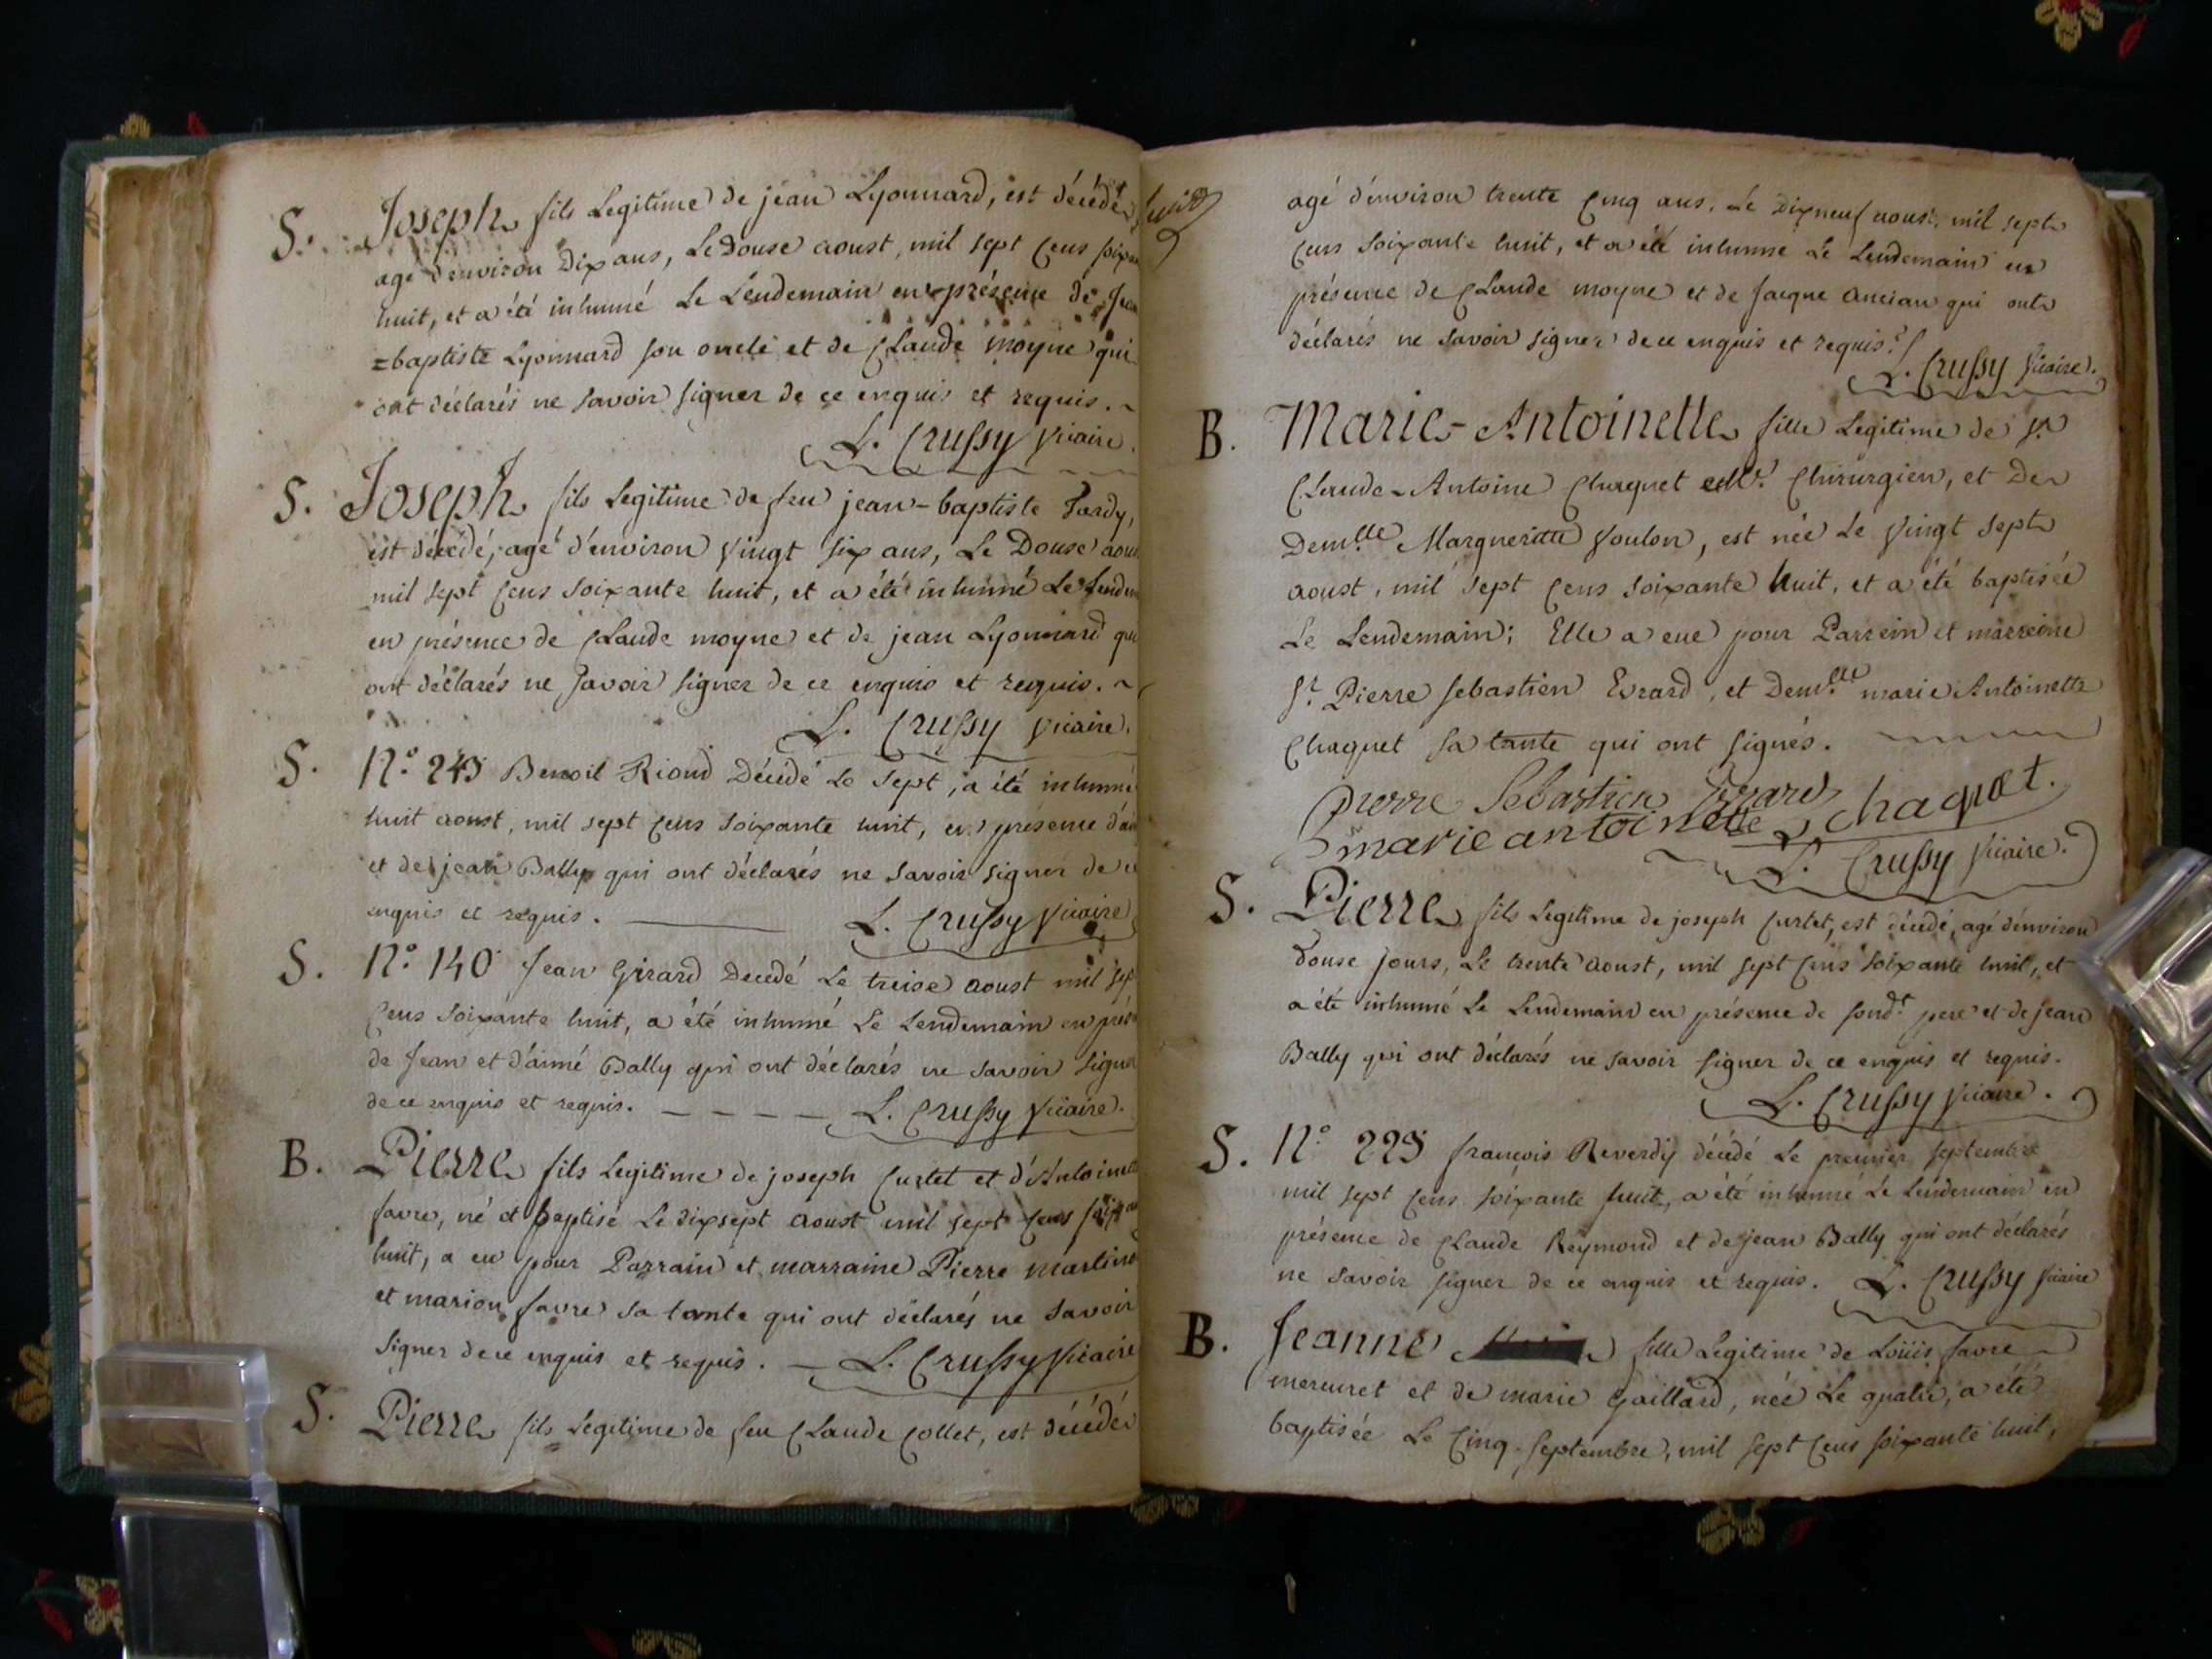 S. Joseph fils Legitime de jean Lyonnard, est décédé
agé d'environ Dix ans, Le Douse aoust, mil sept cens soixan
huit, et a été inhumé Le Lendemain en présence de Jean
=baptiste Lyonnard son oncle et de Claude moyne qui
ont déclarés ne savoir signer de ce enquis et requis. ~
L. Crussy vicaire.
S. Joseph fils Legitime de feu jean-baptiste Tardy,
est décédé, agé d'environ vingt six ans, Le Douse aou
mil sept cens soixante huit, et a été inhumé Le Lendem
en présence de Claude moyne et de jean Lyonnard qui
ont déclarés ne savoir signer de ce enquis et requis. ~
L. Crussy vicaire.
S. N.° 245 Benoit Rioud Décédé Le sept, a été inhumé
huit aoust, mil sept cens soixante huit, en présence d'ai
et de jean Bally qui ont déclarés ne savoir signer de ce
enquis et requis. L. Crussy vicaire
S. N.° 140 Jean Girard Decedé Le treise aoust mil sep
cens soixante huit, a été inhumé Le Lendemain en prés
de Jean et d'aimé Bally qui ont déclarés ne savoir signer
de ce enquis et requis. L. Crussy vicaire.
B. Pierre fils Legitime de joseph Curtet et d'Antoinette
favre, né et baptisé Le dixsept aoust mil sept cens soixan
huit, a eu pour Parrain et marraine Pierre martin
et marion favre sa tante qui ont déclarés ne savoir
signer de ce enquis et requis. L. Crussy vicaire
S. Pierre fils Legitime de feu Claude Collet, est décédé
agé d'environ trente cinq ans, Le Dixneuf aoust, mil sept
cens soixante huit, et a été inhumé Le Lendemain en
présence de Claude moyne et de Jacque ancian qui ont
déclarés ne savoir signer de ce enquis et requis.
L. Crussy vicaire.
B. Marie-Antoinette fille Legitime de Sr
Claude-Antoine Chaquet Chirurgien, et De
Dem.lle Margueritte voulon, est née Le vingt sept
aoust, mil sept cens soixante huit, et a été baptisée
Le Lendemain; Elle a eue pour Parrein et marreine
Sr. Pierre sebastien Evrard, et Dem.lle marie Antoinette
Chaquet sa tante qui ont signés.
pierre Sebastien Evrard
marie antoinette chaquet.
L. Crussy vicaire.
S. Pierre fils Legitime de joseph Curtet, est décédé, agé d'environ
Douse jours, Le trente aoust, mil sept cens soixante huit, et
a été inhumé Le Lendemain en présence de sond.t pere et de jean
Bally qui ont déclarés ne savoir signer de ce enquis et requis.
L. Crussy vicaire.
S. N.° 225 francois Reverdy décédé Le premier septembre
mil sept cens soixante huit, a été inhumé Le Lendemain en
présence de Claude Reymond et de jean Bally qui ont déclarés
ne savoir signer de ce enquis et requis. L. Crussy vicaire
B. Jeanne fille Legitime de Loüis favre
mercuret et de marie Gaillard, née Le quatre, a été
baptisée Le Cinq septembre, mil sept cens soixante huit,